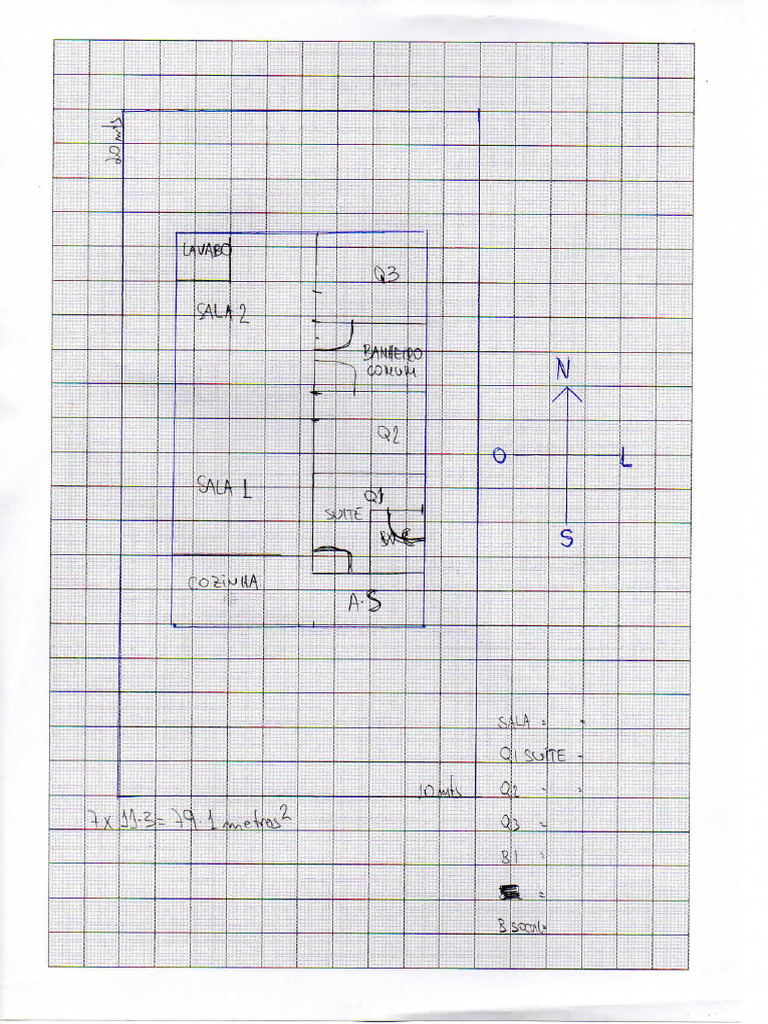 20 mts
LAVABO
Q3
SALA 2
BANHEIRO
COMUM
N
Q2
O
L
SALA 1
Q1
SUITE
S
COZINHA
A.S
SALA =
Q1 SUITE -
10 mts
Q2 -
7 x 11.3 = 79.1 metros²
Q3 =
B1 =
=
B social=